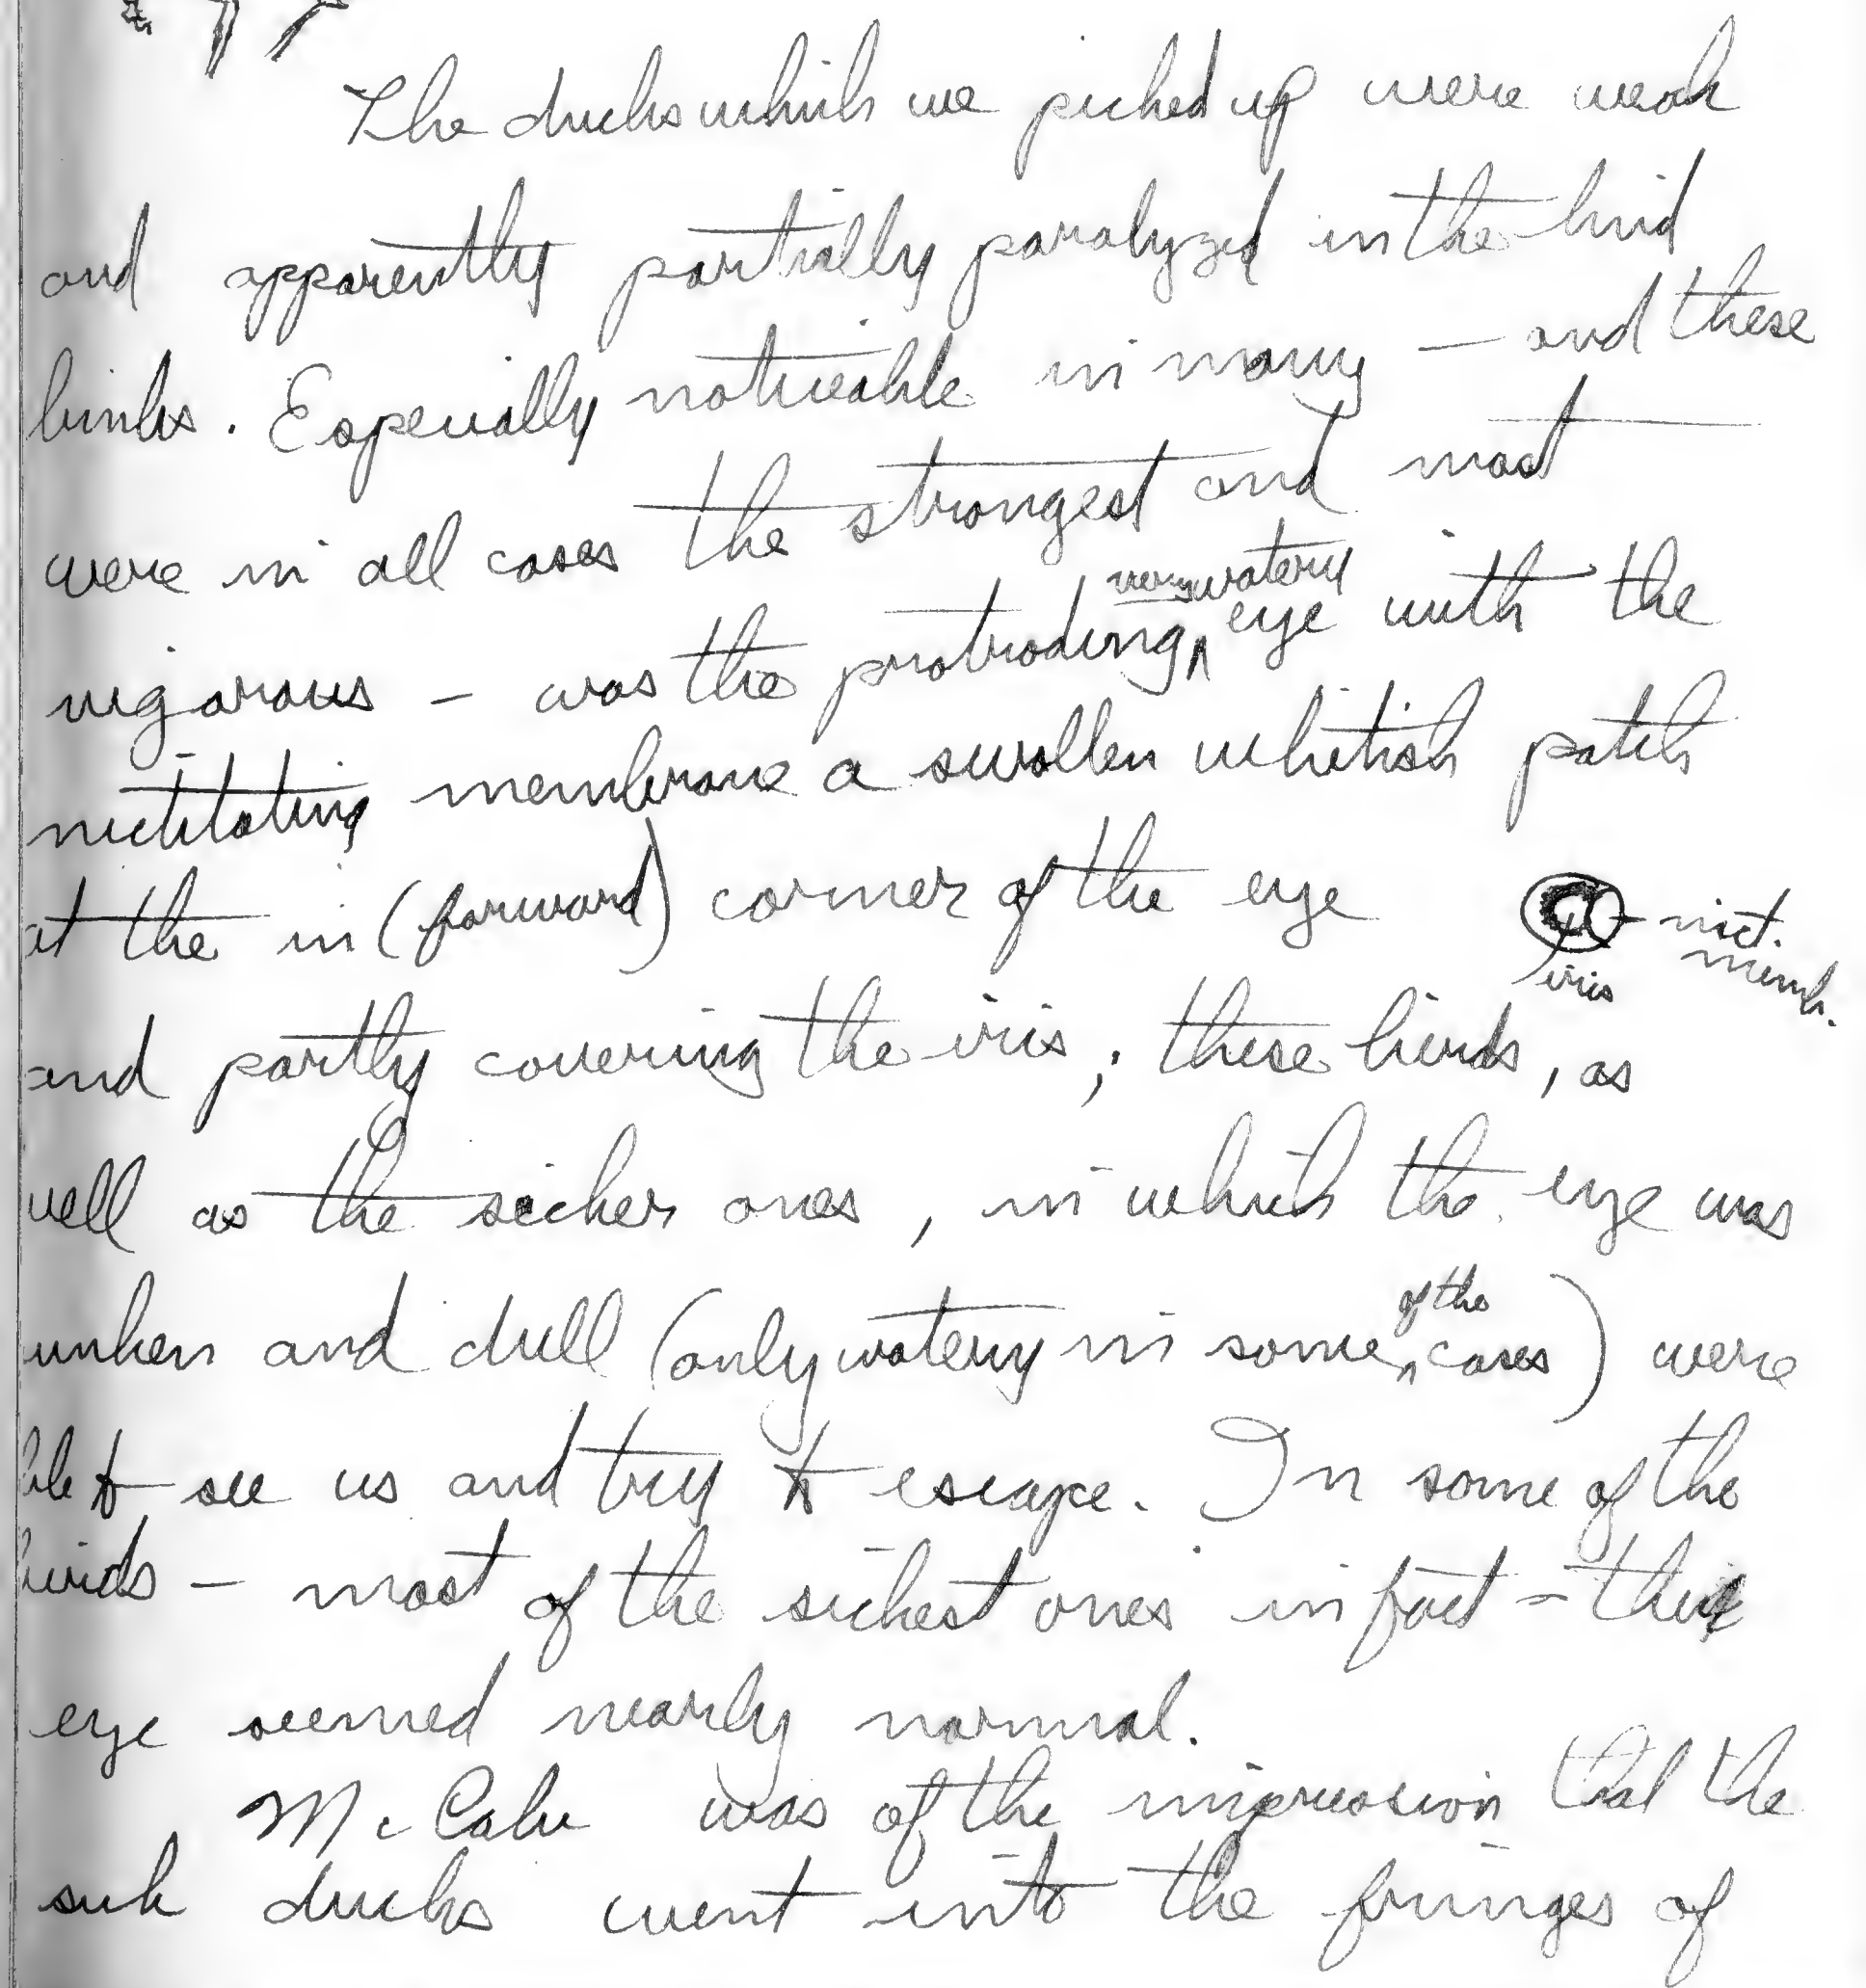 The ducks which we picked up were weak
and apparently partially paralyzed in the hind
limbs. Especially noticeable in many — and these
were in all cases the strongest and most
very watery
vigorous – was the protruding ^ eye with the
nictitating membrane a swollen whitish patch
at the in (forward) corner of the eye
nict.
memb.
iris
and partly covering the iris; these birds, as
well as the sicker ones, in which the eye was
unken and dull (only watery in some ^ of the cases) were
ble to see us and try to escape. In some of the
birds – most of the sickest ones in fact – the
eye seemed nearly normal.
McCabe was of the impression that the
sick ducks went into the fringes of